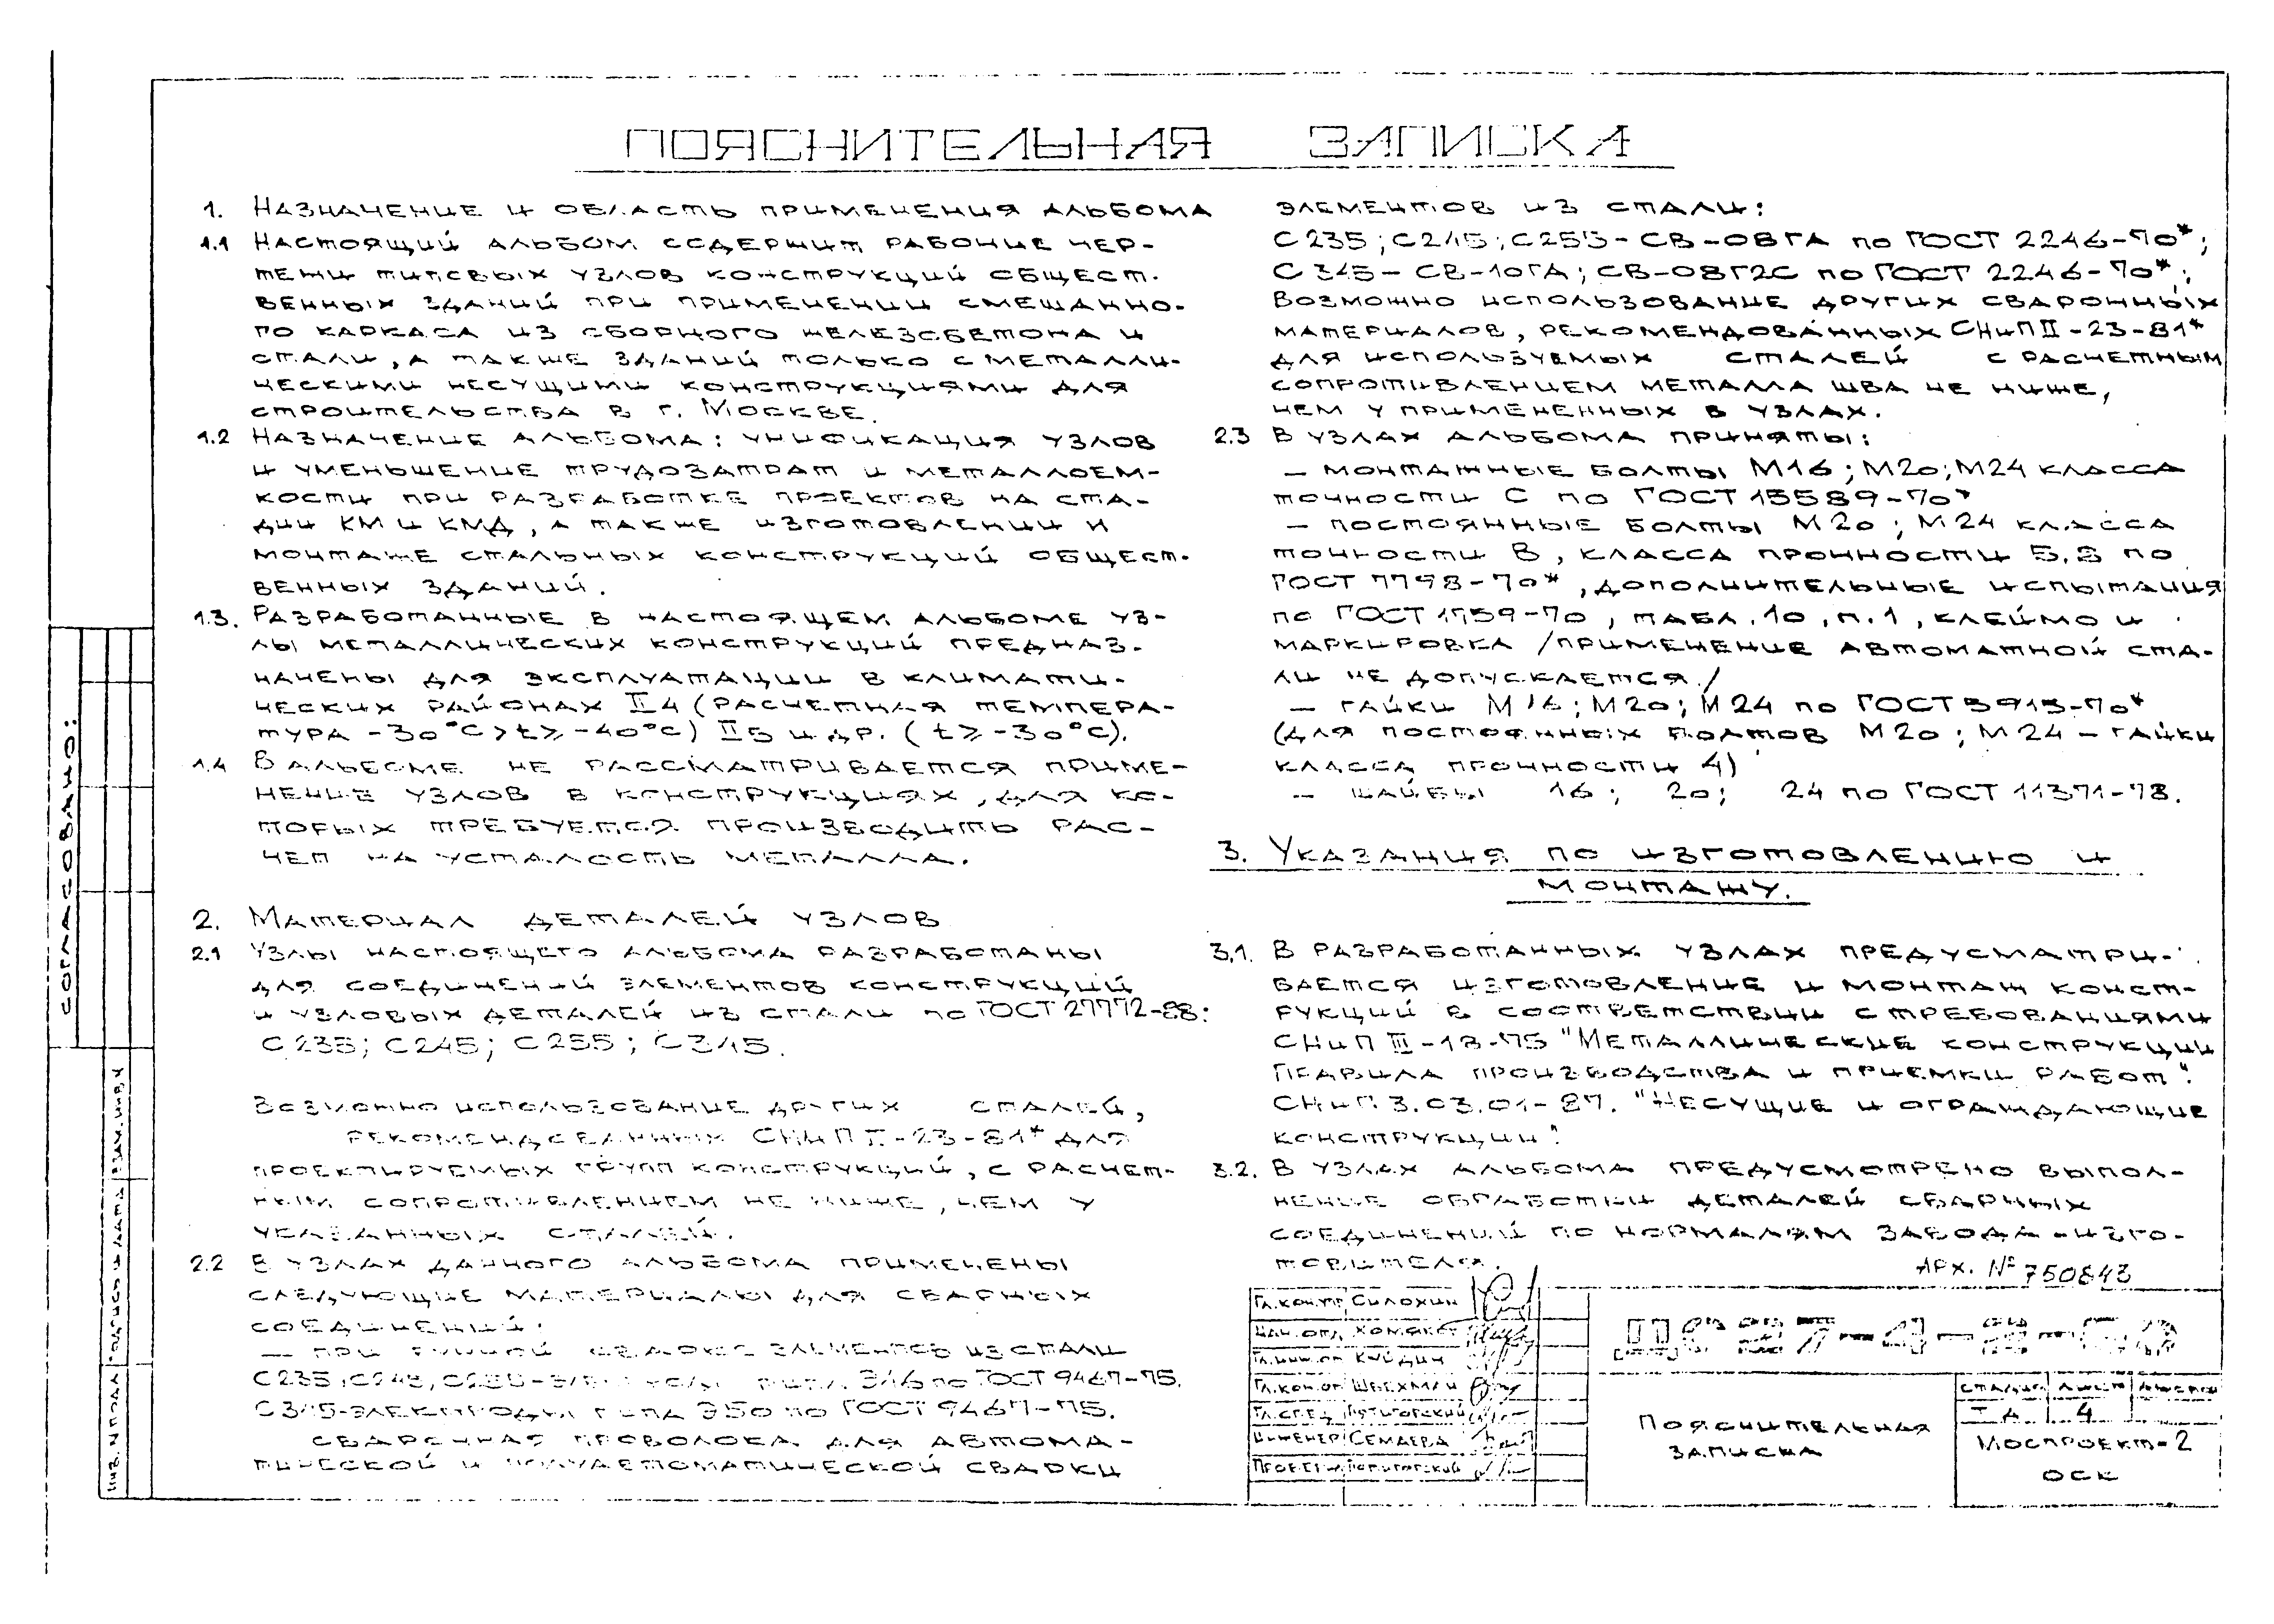 ПОЯСНИТЕЛЬНАЯ ЗАПИСКА
1. Назначение и область применения альбома
1.1 Настоящий альбом содержит рабочие чер-
тежи типовых узлов конструкций общест-
венных зданий при применении смешанно-
го каркаса из сборного железобетона и
стали, а также зданий только с металли-
ческими несущими конструкциями для
строительства в г. Москве.
1.2 Назначение альбома: унификация узлов
и уменьшение трудозатрат и металлоем-
кости при разработке проектов на ста-
дии КМ и КМД, а также изготовлении и
монтаже стальных конструкций общест-
венных зданий.
1.3. Разработанные в настоящем альбоме уз-
лы металлических конструкций предназ-
начены для эксплуатации в климати-
ческих районах II4 (расчетная темпера-
тура -30°С>t≥-40°С) II5 и др. (t≥-30°С).
1.4 В альбоме не рассматривается приме-
нение узлов в конструкциях, для ко-
торых требуется производить рас-
чет на усталость металла.
2. Материал деталей узлов
2.1 Узлы настоящего альбома разработаны
для соединений элементов конструкций
и узловых деталей из стали по ГОСТ 27772-88:
С235; С245; С255; С345.
Возможно использование других сталей,
рекомендованных СНиП II-23-81* для
проектируемых групп конструкций, с расчет-
ным сопротивлением не ниже, чем у
указанных сталей.
2.2 В узлах данного альбома применены
следующие материалы для сварных
соединений:
— при ручной сварке элементов из стали
С235; С245; С255- Э46 по ГОСТ 9467-75.
С345-электроды типа Э50 по ГОСТ 9467-75.
сварочная проволока для автома-
тической и полуавтоматической сварки
элементов из стали:
С235; С245; С255 - СВ-08ГА по ГОСТ 2246-70*;
С345 - СВ-10ГА; СВ-08Г2С по ГОСТ 2246-70*;
Возможно использование других сварочных
материалов, рекомендованных СНиП II-23-81*
для используемых сталей с расчетным
сопротивлением металла шва не ниже,
чем у примененных в узлах.
2.3 В узлах альбома приняты:
— монтажные болты М16; М20; М24 класса
точности С по ГОСТ 15589-70*
— постоянные болты М20; М24 класса
точности В, класса прочности 5.8 по
ГОСТ 7798-70*, дополнительные испытания
по ГОСТ 1759-70, табл. 10, п. 1, клеймо и
маркировка /применение автоматной ста-
ли не допускается./
— гайки М16; М20; М24 по ГОСТ 5915-70*
(для постоянных болтов М20; М24 — гайки
класса прочности 4)
— шайбы 16; 20; 24 по ГОСТ 11371-78.
3. Указания по изготовлению и
монтажу.
3.1. В разработанных узлах предусматри-
вается изготовление и монтаж конст-
рукций в соответствии с требованиями
СНиП III-18-75 "Металлические конструкции
Правила производства и приемки работ".
СНиП 3.03.01-87. "Несущие и ограждающие
конструкции".
3.2. В узлах альбома предусмотрено выпол-
нение обработки деталей сварных
соединений по нормалям завода-изго-
товителя.
Арх. № 750843
Гл. констр Силохин
Нач. отд.
Гл. инж. оп
Гл. кон. оп Швехман
Гл. спец. Пятигорский
Инженер Семаева
Пятигорский
Пояснительная
записка
стадия лист листов
4
Моспроект-2
ОСК
согласовано:
Инв. № подл Подпись и дата Взам. инв №